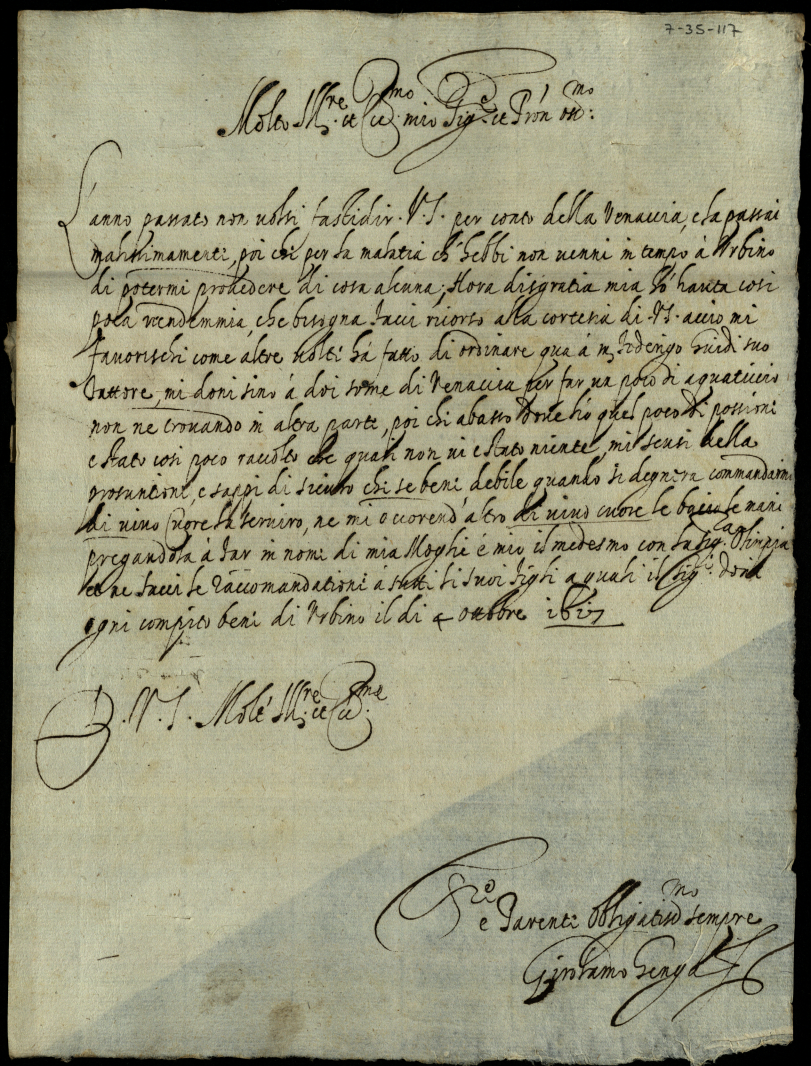 7-35-117
Molto Ill.re et Ecc.mo mio Sig.re et Pron oss.mo:
L'anno passato non volsi fastidir V.S. per conto della Venaccia, e la passai
malissimamente, poi che per la malatia ch'hebbi non venni in tempo à Urbino
di potermi provedere di cosa alcuna; Hora disgratia mia hò hauta cosi
poca vendemmia, che bisogna facci ricorso alla cortesia di V.S. acciò mi
favorischi come altre volte hà fatto di ordinare qua à m. Guidi suo
fattore, mi doni sino à doi some di Venaccia per far un poco di aquaticcio
non ne trovando in altra parte, poi chi abasso dove hò quel poco di possioni
è stato cosi poco raccolto che quasi non vi è stato niente, mi scusi della
prosuntione, e sappi di sicuro che se bene debile quando si degnera commandarmi
di vivo cuore la serviro, ne mi occorend'altro di vivo cuore le bascio le mani
pregandola à far in nome di mia Moglie e mio il medesmo con la Sig.ra Olimpia
et ne facci le raccomandationi à tutti li suoi figli a quali il Sig.re doia
ogni compito bene di Urbino il di 4 ottobre 1617
D. V. S. Molt' Ill.re et Ecc.me
e Parente Obligatiss.mo sempre
Girolamo